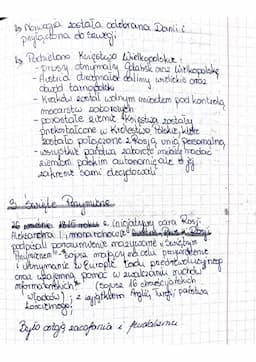 ↳ Norwegia została odebrana Danii i
przyłączona do Szwecji
↳ Podzielono Księstwo Wielkopolskie:
- Prusy otrzymały Gdańsk oraz Wielkopolskę
- Austria otrzymała saliny wielickie oraz
obwód tarnopolski
- Kraków został wolnym miastem pod kontrolą
mocarstw zaborczych
- pozostałe ziemie Księstwa zostały
przekształcone w Królestwo Polskie, które
zostało połączone z Rosją unią personalną
- wszystkie państwa zaborcze miały nadać
ziemiom polskim autonomię ale o jej
zakresie sami decydowali
3. Święte Przymierze
26 września 1815 roku z inicjatywy cara Rosji
Aleksandra I, monarchowie
podpisali porozumienie nazywane „Świętym
Przymierzem". Sojusz mający na celu przywrócenie
i utrzymanie w Europie ładu przedrewolucyjnego
oraz wzajemną pomoc w zwalczaniu ruchów
reformatorskich" (sojusz 16 chrześcijańskich
władców); z wyjątkiem Anglii, Turcji, państwa
kościelnego;
Było ostoją zacofania i feudalizmu